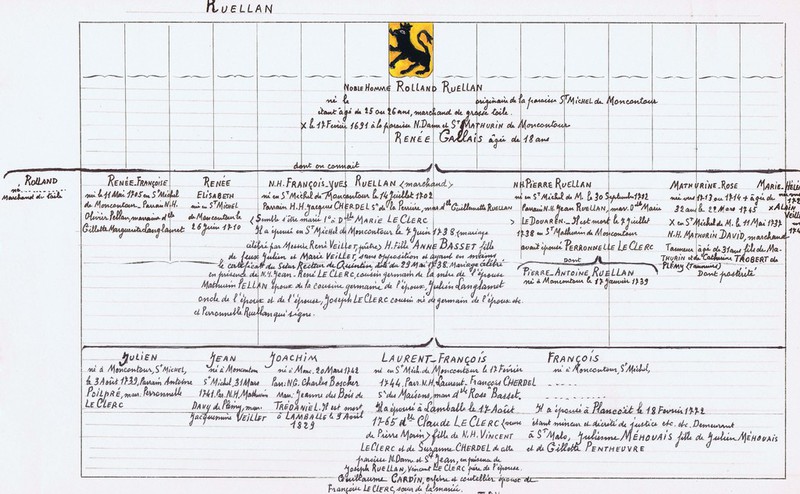 RUELLAN
NOBLE HOMME ROLLAND RUELLAN
né le originaire de la paroisse St MICHEL de Moncontour
étant âgé de 25 ou 26 ans, marchand de grosse toile.
X le 17 Février 1691 à la paroisse N.Dame et St MATHURIN de Moncontour
RENÉE GALLAIS âgée de 18 ans
dont on connait
ROLLAND
né
Marchand de toile
RENÉE-FRANÇOISE
née le 11 Mai 1705 en St Michel
de Moncontour. Parrain N.H.
Olivier Pellan, marraine dlle
Gillette Marguerite Langlamet
RENÉE
ELISABETH
née en St Michel
de Moncontour le
26 Juin 1710
N.H. FRANÇOIS-YVES RUELLAN (marchand)
né en St Michel de Moncontour le 14 Juillet 1702
Parrain H.H. Jacques CHERDEL Sr de la Perrière, mar. dlle Guillemette RUELLAN
(Semble s'être marié 1o à Dlle MARIE LE CLERC
Il a épousé en St Michel de Moncontour le 7 Juin 1738 (mariage
célébré par Messire René VEILLET, prêtre) H. Fille ANNE BASSET fille
de feux Julien et Marie VEILLET, sans opposition et ayant en mains
le certificat du Sieur Recteur de Quintin, daté du 29 Mai 1738. Mariage célébré
en présence de N.H. Jean-René LE CLERC, cousin germain de la mère de l'épouse
Mathurin FELLAN époux de la cousine germaine de l'époux, Julien Langlamet
oncle de l'époux et de l'épouse, Joseph LE CLERC cousin né de germain de l'époux de
et Perronnelle Ruellan qui signe.
NH. PIERRE RUELLAN
né en St Michel de M. le 30 Septembre 1712
Parrain N.H. Jean RUELLAN, mar. Dlle Marie
LE DOUAREN. Il est mort le 7 Juillet
1738 en St Mathurin de Moncontour
avait épousé PERRONNELLE LE CLERC
dont
PIERRE-ANTOINE RUELLAN
né à Moncontour le 17 Janvier 1739
MATHURINE-ROSE
née vers 1713 ou 1714 + âgée de
32 ans le 22 Mars 1745
X en St Michel de M. le 11 Mai 1737
N.H. MATHURIN DAVID, marchand
Tanneur âgé de 31 ans fils de MA-
THURIN et de Catherine TAOBERT de
PLÉMY (Tannerie)
Dont postérité
MARIE-HÉLÈ
JULIEN
né à Moncontour, St Michel,
le 3 Août 1739, Parrain Antoine
POILPRÉ, mar. Perronnelle
LE CLERC
JEAN
né à Moncontour
St Michel, 31 Mars
1741. Par. N.H. Mathurin
DAVY de Plémy, mar.
Jacquemine VEILLET
JOACHIM
né à Monc. 20 Mars 1742
Par. NG. Charles Boscher
mar. Jeanne des Bois de
TRÉDANIEL. Il est mort
à LAMBALLE le 9 Avril
1829
LAURENT-FRANÇOIS
né en St Mich. de Moncontour le 17 Février
1744, Par. N.H. Laurent-François CHERDEL
Sr des Maisons, mar. dlle Rose Basset,
Il a épousé à Lamballe le 17 Août
1765 dlle Claude LE CLERC (veuve
de Pierre Morin) fille de N.H. VINCENT
LE CLERC et de Suzanne CHERDEL de cette
paroisse N.Dame et St Jean, en présence de
Joseph RUELLAN, Vincent LE CLERC père de l'épouse.
Guillaume CARDIN, orfèvre et coutellier époux de
Françoise LE CLERC, sœur de la mariée.
FRANÇOIS
né à Moncontour, St Michel,
Il a épousé à Plancoët le 18 Février 1772
étant mineur et décrété de justice etc. etc. Demeurant
à St Malo, Julienne MÉHOUAIS fille de Julien MÉHOUAIS
et de Gillette PENTHEUVRE